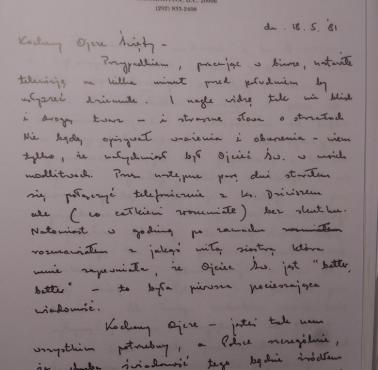 WASHINGTON, D.C. 20008
(202)
dn. 18.5.'81
Kochany Ojcze Święty -
Przypadkiem, pracując w biurze,
telewizję na kilka minut przed południem by
usłyszeć dziennik. I nagle widzę tak mi bliską
i drogą twarz - i straszne słowa o strzałach
Nie będę opisywał wrażenia i oburzenia - wiem
tylko, że natychmiast był Ojciec Św. w moich
modlitwach. Przez następne parę dni starałem
się połączyć telefonicznie z ks. Dziwiszem
ale (co całkiem zrozumiałe) bez skutku.
Natomiast w godzinę po zamachu rozmawiałem
z jakąś miłą siostrą która
mnie zapewniała, że Ojciec Św. jest "better,
better" - to była pierwsza pocieszająca
wiadomość.
Kochany Ojcze - jesteś tak nam
wszystkim potrzebny, a Polsce szczególnie,
że chyba świadomość tego będzie źródłem